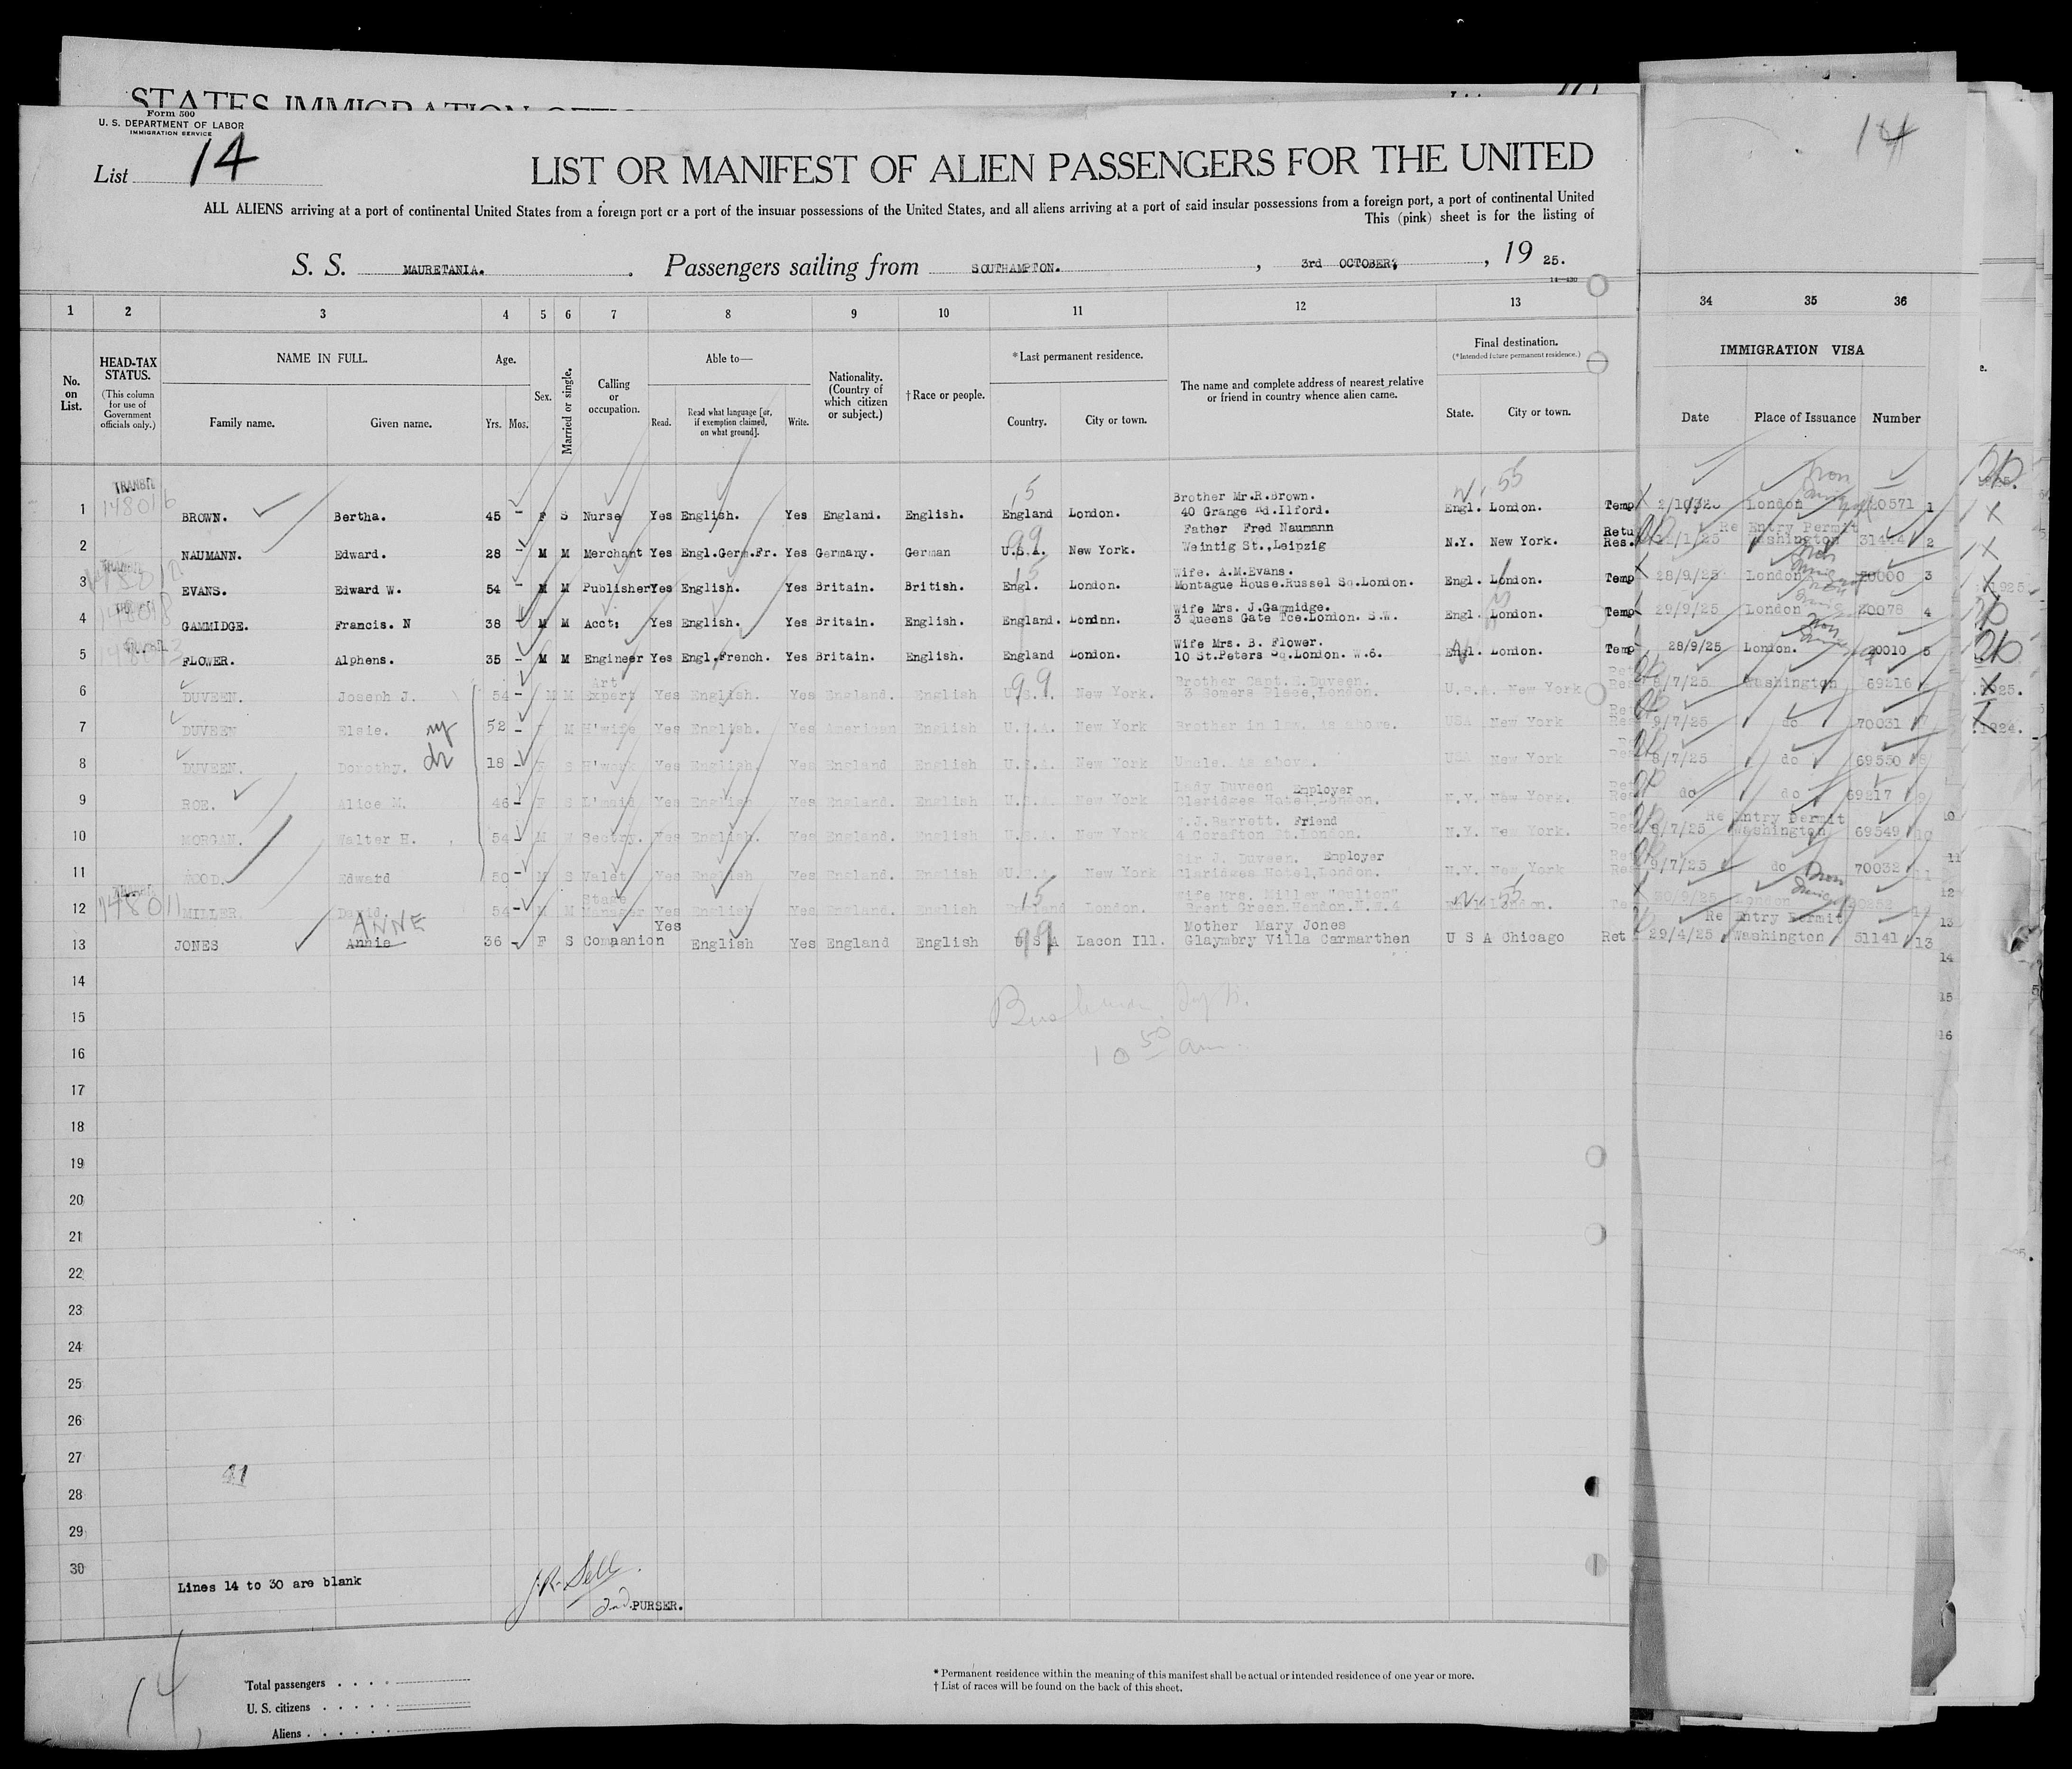 STATES IMMIGRATION
Form 500
U. S. DEPARTMENT OF LABOR
IMMIGRATION SERVICE
List 14
LIST OR MANIFEST OF ALIEN PASSENGERS FOR THE UNITED
ALL ALIENS arriving at a port of continental United States from a foreign port or a port of the insular possessions of the United States, and all aliens arriving at a port of said insular possessions from a foreign port, a port of continental United
This (pink) sheet is for the listing of
S. S. MAURETANIA. Passengers sailing from SOUTHAMPTON. , 3rd OCTOBER, , 19 25.
14
1 2 3 4 5 6 7 8 9 10 11 12 13 34 35 36
No. on List. HEAD-TAX STATUS. (This column for use of Government officials only.) NAME IN FULL. Family name. Given name. Age. Yrs. Mos. Sex. Married or single. Calling or occupation. Able to— Read. Read what language [or, if exemption claimed, on what ground]. Write. Nationality. (Country of which citizen or subject.) †Race or people. *Last permanent residence. Country. City or town. The name and complete address of nearest relative or friend in country whence alien came. Final destination. (*Intended future permanent residence.) State. City or town. IMMIGRATION VISA Date Place of Issuance Number
1 TRANSIT 148016 BROWN. Bertha. 45 - F S Nurse Yes English. Yes England. English. England London. Brother Mr.R.Brown. 40 Grange Rd.Ilford. Engl. London. Temp London 20571 1
2 NAUMANN. Edward. 28 - M M Merchant Yes Engl.Germ.Fr. Yes Germany. German U.S.A. New York. Father Fred Naumann Weintig St.,Leipzig N.Y. New York. Retu Res. Re Entry Permit Washington 2
3 EVANS. Edward W. 54 - M M Publisher Yes English. Yes Britain. British. Engl. London. Wife. A.M.Evans. Montague House.Russel Sq.London. Engl. London. Temp 28/9/25 London 3
4 GAMMIDGE. Francis. N 38 - M M Acct: Yes English. Yes Britain. English. England. London. Wife Mrs. J.Gammidge. 3 Queens Gate Tce.London. S.W. Engl. London. Temp 29/9/25 London 20078 4
5 FLOWER. Alphens. 35 - M M Engineer Yes Engl.French. Yes Britain. English. England London. Wife Mrs. B. Flower. 10 St.Peters Sq.London. W.6. Engl. London. Temp 28/9/25 London. 20010 5
6 DUVEEN. Joseph J. 54 - M M Art Expert Yes English. Yes England. English U.S.A. New York. Brother Capt. E.Duveen. 3 Somers Place,London. U.S.A. New York Washington 69216
7 DUVEEN Elsie. 52 - F M H'wife Yes English. Yes American English U.S.A. New York Brother in law. as above. USA New York 9/7/25 do 70031 7
8 DUVEEN. Dorothy. 18 - F S H'work Yes English Yes England English U.S.A. New York Uncle. As above. USA New York 8/7/25 do 69550 8
9 ROE. Alice M. 46 - F S L'maid Yes English Yes England. English U.S.A. New York Lady Duveen Employer Claridges Hotel,London. N.Y. New York. do do 69217 9
10 MORGAN. Walter H. 54 - M Sectry. Yes English. Yes England. English U.S.A. New York J.Barrett. Friend N.Y. New York. Re Entry Permit 8/7/25 Washington 69549 10
11 WOOD. Edward 50 - M S Valet Yes English Yes England. English U.S.A. New York Sir J. Duveen. Employer Claridges Hotel,London. N.Y. New York 9/7/25 do 70032 11
12 TRANSIT 148011 MILLER. David. 54 - M M Stage Manager Yes English Yes England. English England London. Wife Mrs. Miller Brent Green.Hendon.N.W.4 London. 30/9/25 London 20252 12
13 JONES ANNE Annie 36 - F S Companion Yes English Yes England English U S A Lacon Ill. Mother Mary Jones Glaymbry Villa Carmarthen U S A Chicago Ret Re Entry Permit 29/4/25 Washington 51141 13
14
15
16
10 50 am.
17
18
19
20
21
22
23
24
25
26
27
41
28
29
30
Lines 14 to 30 are blank
J.R. Sell
2nd. PURSER.
14
Total passengers
U. S. citizens
Aliens
* Permanent residence within the meaning of this manifest shall be actual or intended residence of one year or more.
† List of races will be found on the back of this sheet.